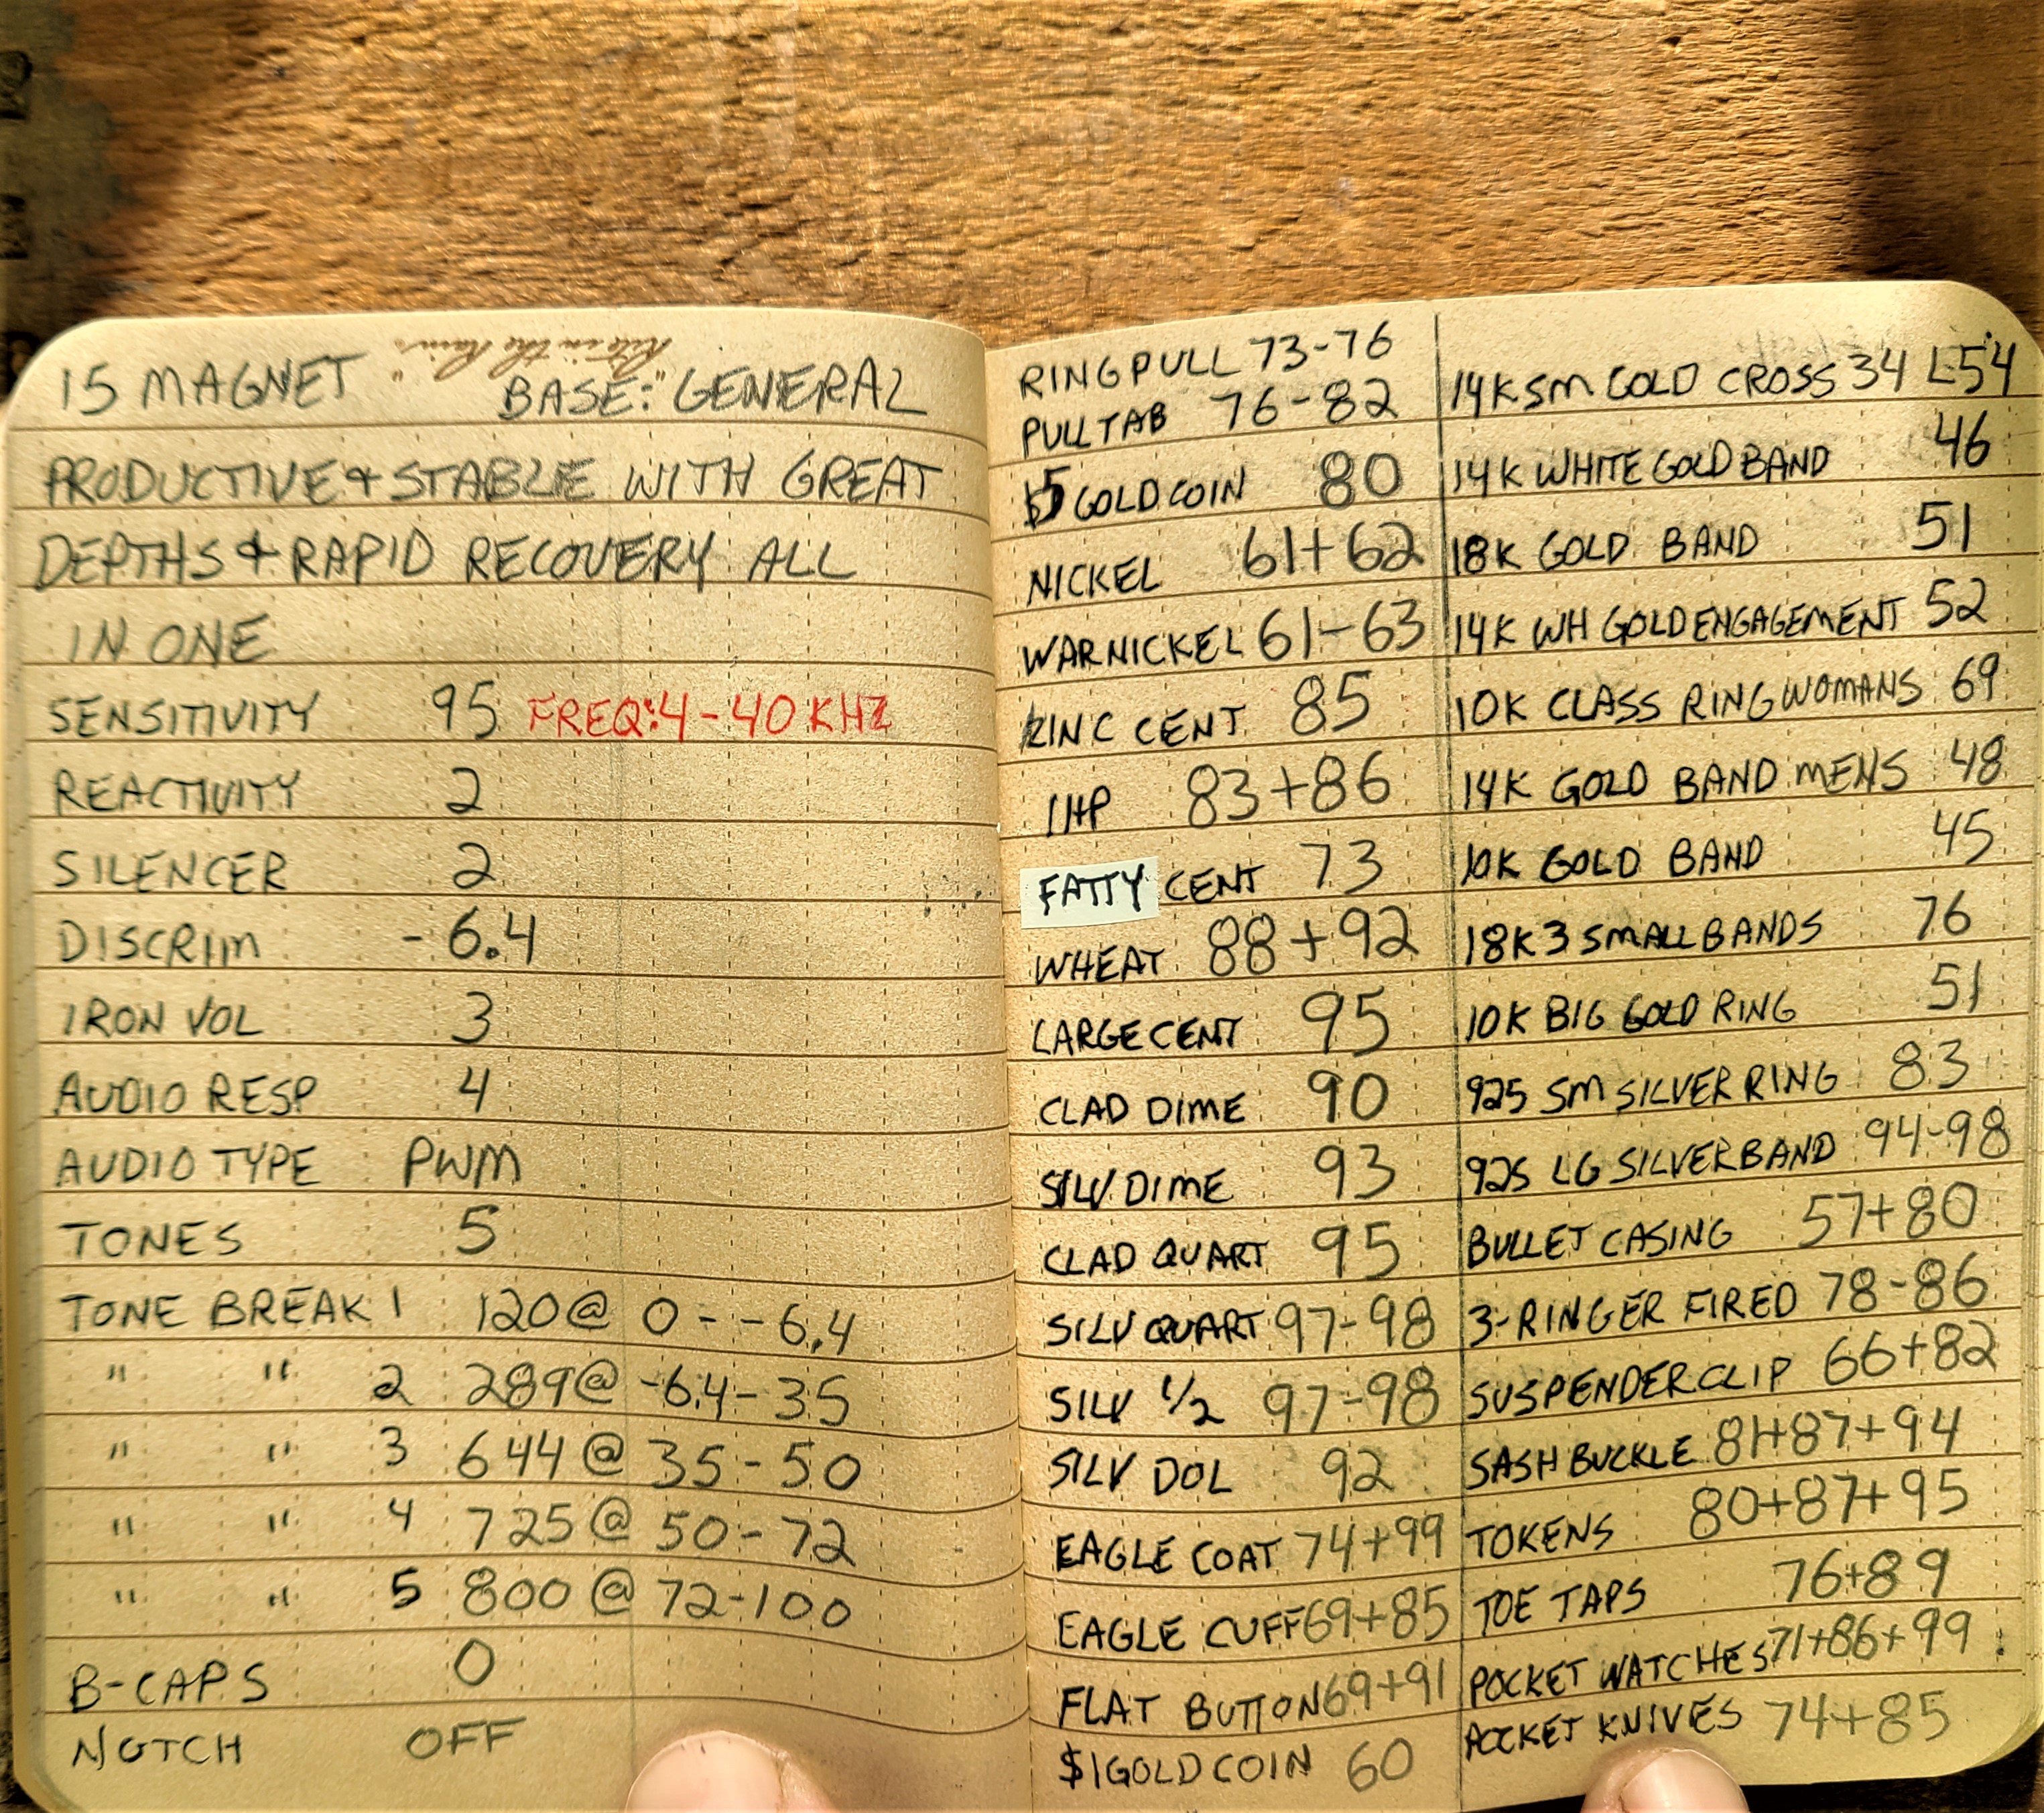 "Rite in the Rain"
15 MAGNET BASE: "GENERAL
PRODUCTIVE & STABLE WITH GREAT
DEPTHS & RAPID RECOVERY ALL
IN ONE
SENSITIVITY 95 FREQ: 4-40 KHZ
REACTIVITY 2
SILENCER 2
DISCRIM -6.4
IRON VOL 3
AUDIO RESP 4
AUDIO TYPE PWM
TONES 5
TONE BREAK 1 120@ 0--6.4
" " 2 289@ -6.4-35
" " 3 644@ 35-50
" " 4 725@ 50-72
" " 5 800@ 72-100
B-CAPS 0
NOTCH OFF
RING PULL 73-76
PULL TAB 76-82
$5 GOLD COIN 80
NICKEL 61+62
WAR NICKEL 61-63
ZINC CENT 85
IHP 83+86
FATTY CENT 73
WHEAT 88+92
LARGE CENT 95
CLAD DIME 90
SILV DIME 93
CLAD QUART 95
SILV QUART 97-98
SILV 1/2 97-98
SILV DOL 92
EAGLE COAT 74+99
EAGLE CUFF 69+85
FLAT BUTTON 69+91
$1 GOLD COIN 60
14K SM GOLD CROSS 34 L54
14K WHITE GOLD BAND 46
18K GOLD BAND 51
14K WH GOLD ENGAGEMENT 52
10K CLASS RING WOMANS 69
14K GOLD BAND MENS 48
10K GOLD BAND 45
18K 3 SMALL BANDS 76
10K BIG GOLD RING 51
925 SM SILVER RING 83
925 LG SILVER BAND 94-98
BULLET CASING 57+80
3-RINGER FIRED 78-86
SUSPENDER CLIP 66+82
SASH BUCKLE 81+87+94
TOKENS 80+87+95
TOE TAPS 76+89
POCKET WATCHES 71+86+99
POCKET KNIVES 74+85